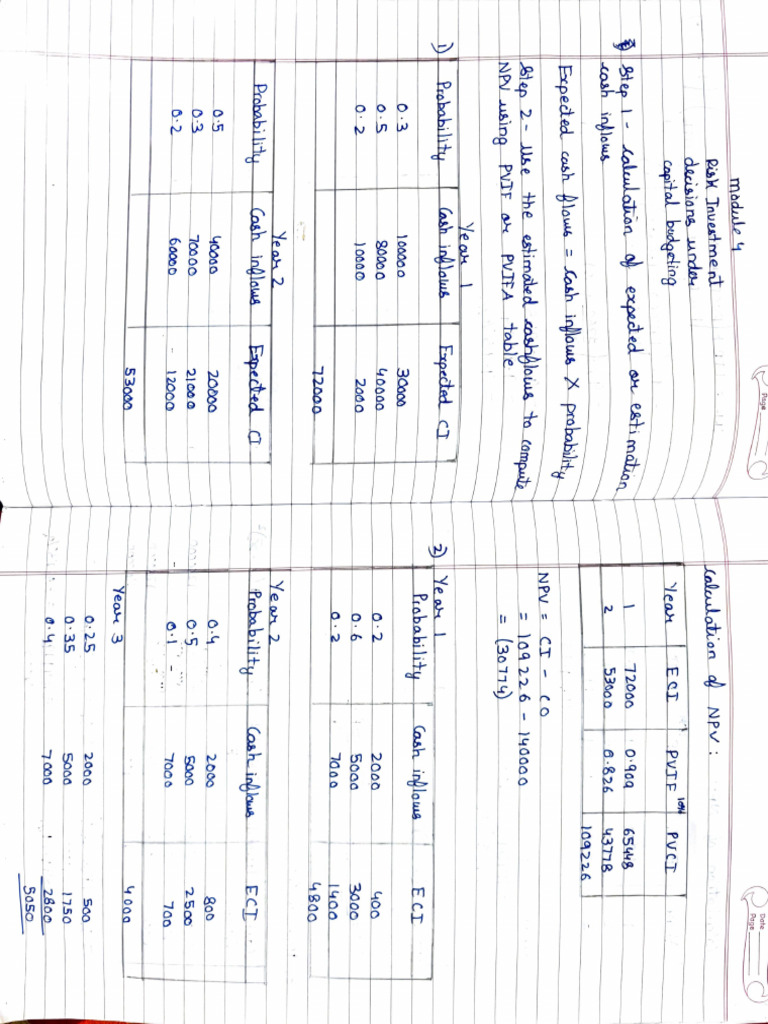 Page
Module 4
Risk Investment
decisions under
capital budgeting
Step 1 - calculation of expected or estimation
cash inflows
Expected cash flows = cash inflows X probability
Step 2 - Use the estimated cashflows to compute
NPV using PVIF or PVIFA table.
1) Year 1
Probability Cash inflows Expected CI
0.3 100000 30000
0.5 80000 40000
0.2 10000 2000
72000
Year 2
Probability Cash inflows Expected CI
0.5 40000 20000
0.3 70000 21000
0.2 60000 12000
53000
Date
Page
Calculation of NPV :
Year ECI PVIF 10% PVCI
1 72000 0.909 65448
2 53000 0.826 43778
109226
NPV = CI - CO
= 109226 - 140000
= (30774)
2) Year 1
Probability Cash inflows ECI
0.2 2000 400
0.6 5000 3000
0.2 7000 1400
4800
Year 2
Probability Cash inflows ECI
0.4 2000 800
0.5 5000 2500
0.1 7000 700
4000
Year 3
0.25 2000 500
0.35 5000 1750
0.4 7000 2800
5050